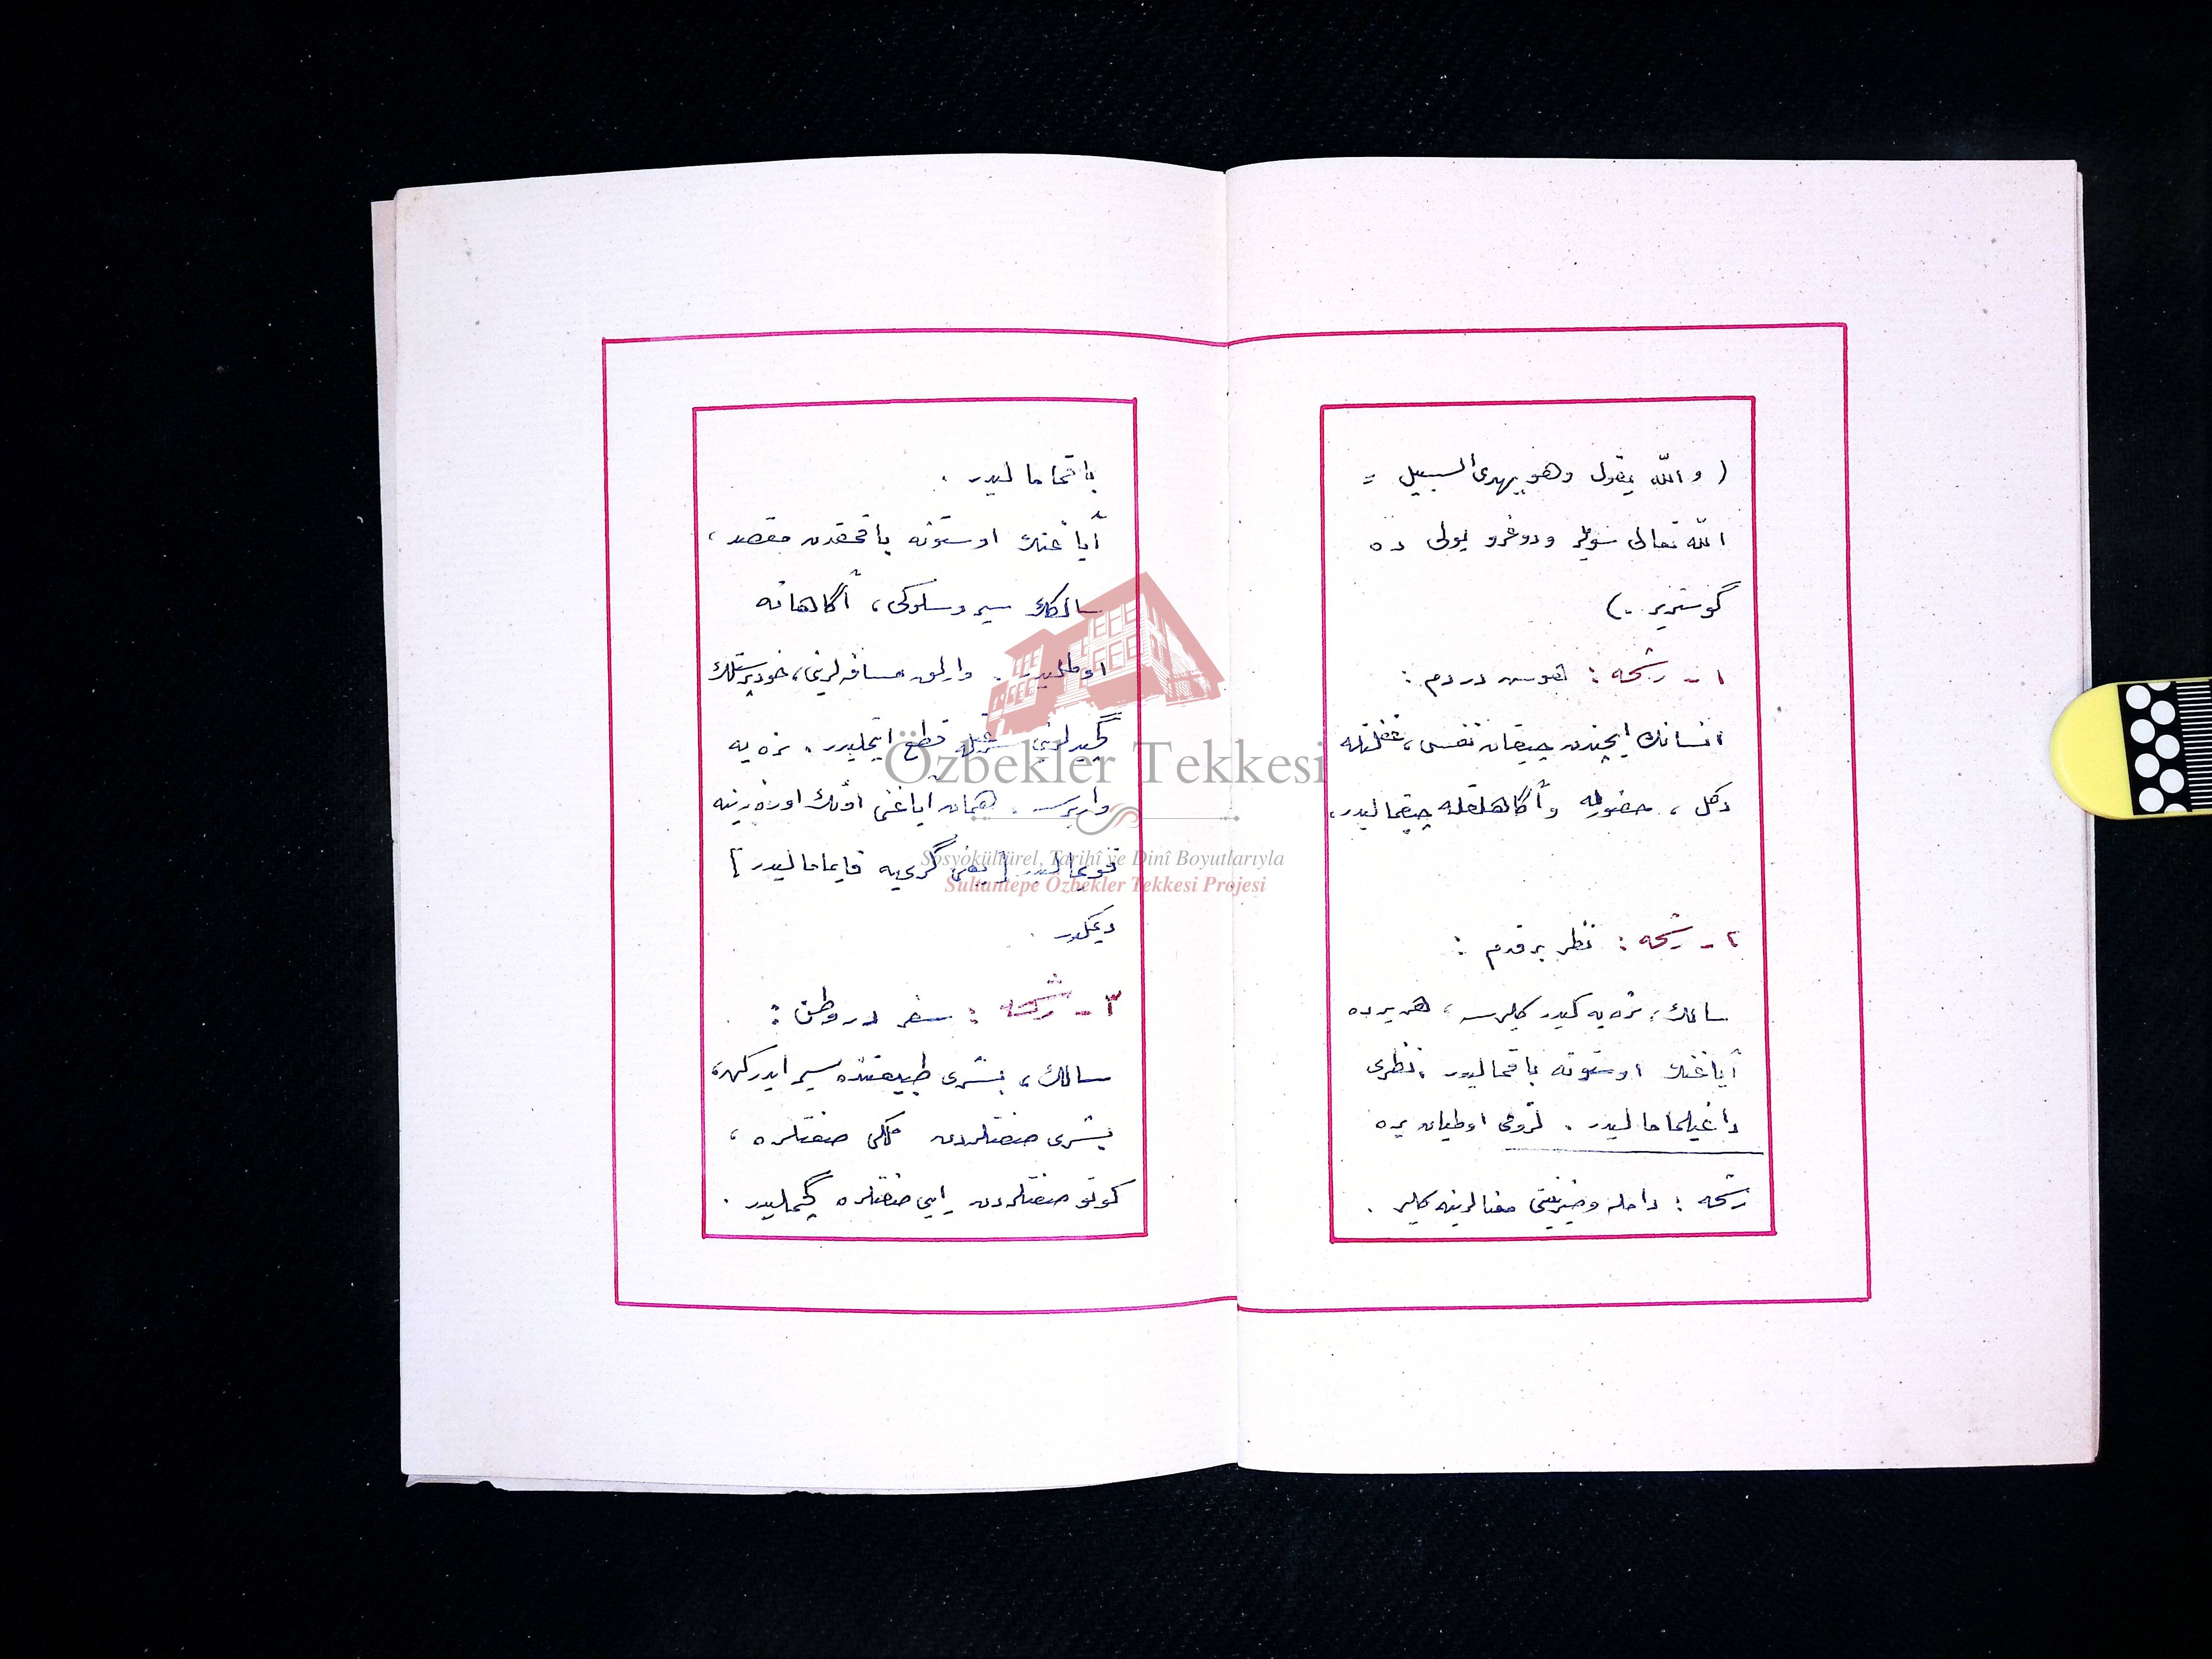 ( و الله يقول وهو يهدى السبيل =
الله تعالى سويلر ودوغرو يولى ده
گوسترير .)
١ - رشحه : هوش در دم :
انسانك ايچندن چيقان نفسى، غفلتله
دكل ، حضورله وآگاهلقله چيقماليدر.
٢ - رشحه : نظر بر قدم :
سالك، نره يه كيدر كليرسه ، هر يرده
آياغنك اوستونه باقماليدر . نظرى
داغيلماماليدر . لزومى اولميان يره
رشحه : داملا وصيزينتى معنالرينه كلير .
باقماماليدر .
آياغنك اوستونه باقمقدن مقصد ،
سالكك سير وسلوكى ، آگاهانه
اولماليدر . وارلق مسافه لرينى، خودپرستلك
گچيدلرينى سرعتله قطع ايتمليدر . نره يه
واريرسه . همان آياغنى اونك اوزرينه
قويماليدر [ يعنى گرى يه قايماماليدر ]
ديمكدر .
٣ - رشحه : سفر در وطن :
سالك ، بشرى طبيعتنده سير ايدركن ،
بشرى صفتلردن ملكى صفتلره ،
كوتو صفتلردن ايى صفتلره گچمليدر .
Özbekler Tekkesi
Sosyokültürel, Tarihî ve Dinî Boyutlarıyla
Sultantepe Özbekler Tekkesi Projesi